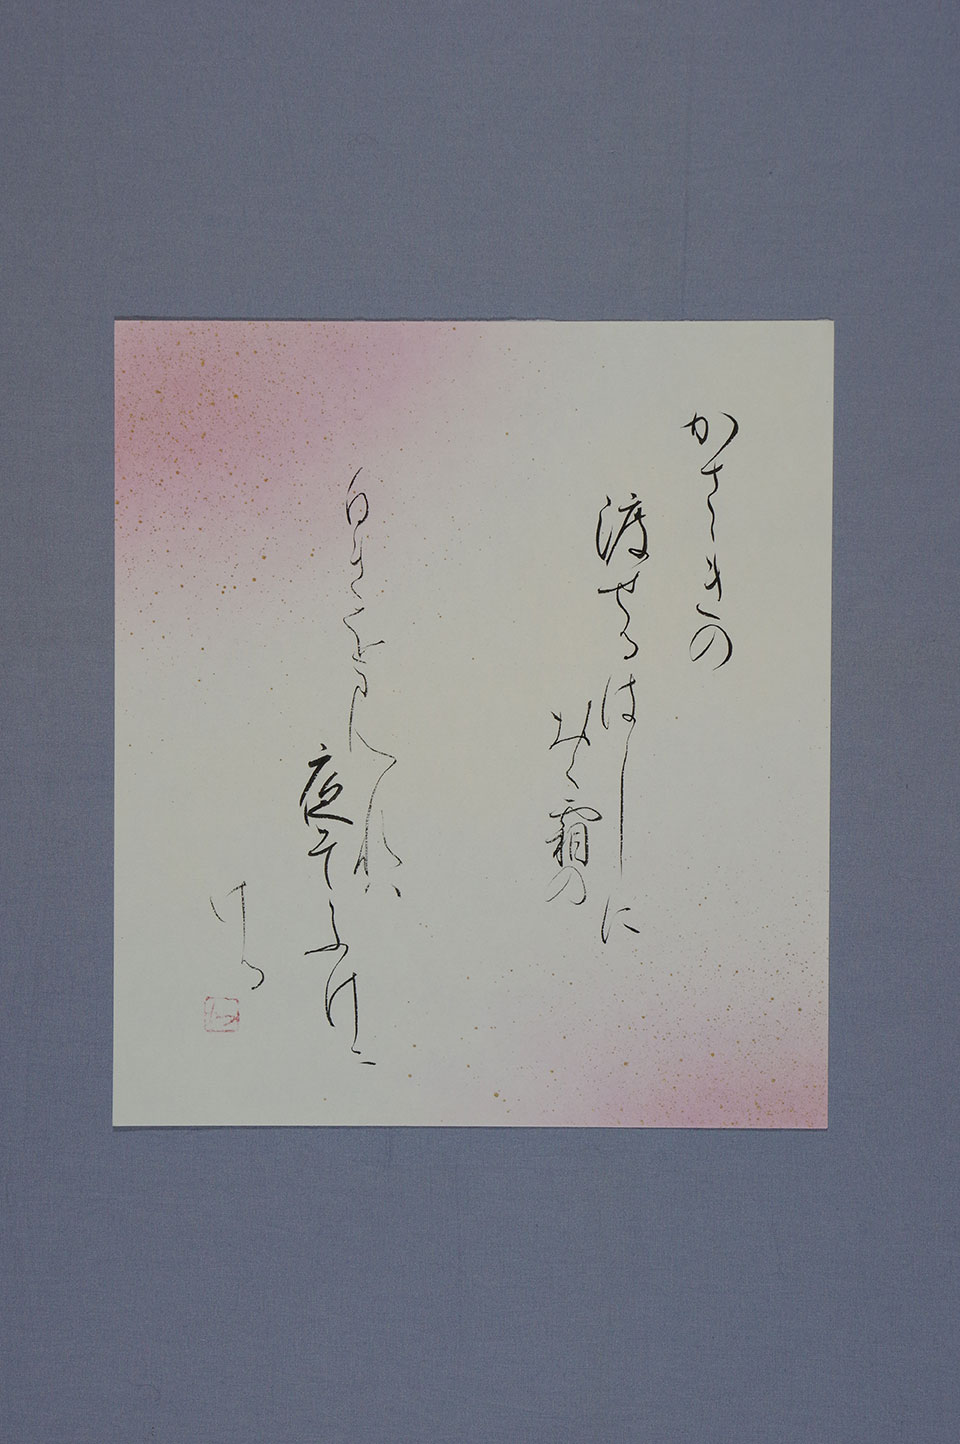 かさゝきの
渡せるはしに
おく霜の
白きを見れは
夜そふけに
ける